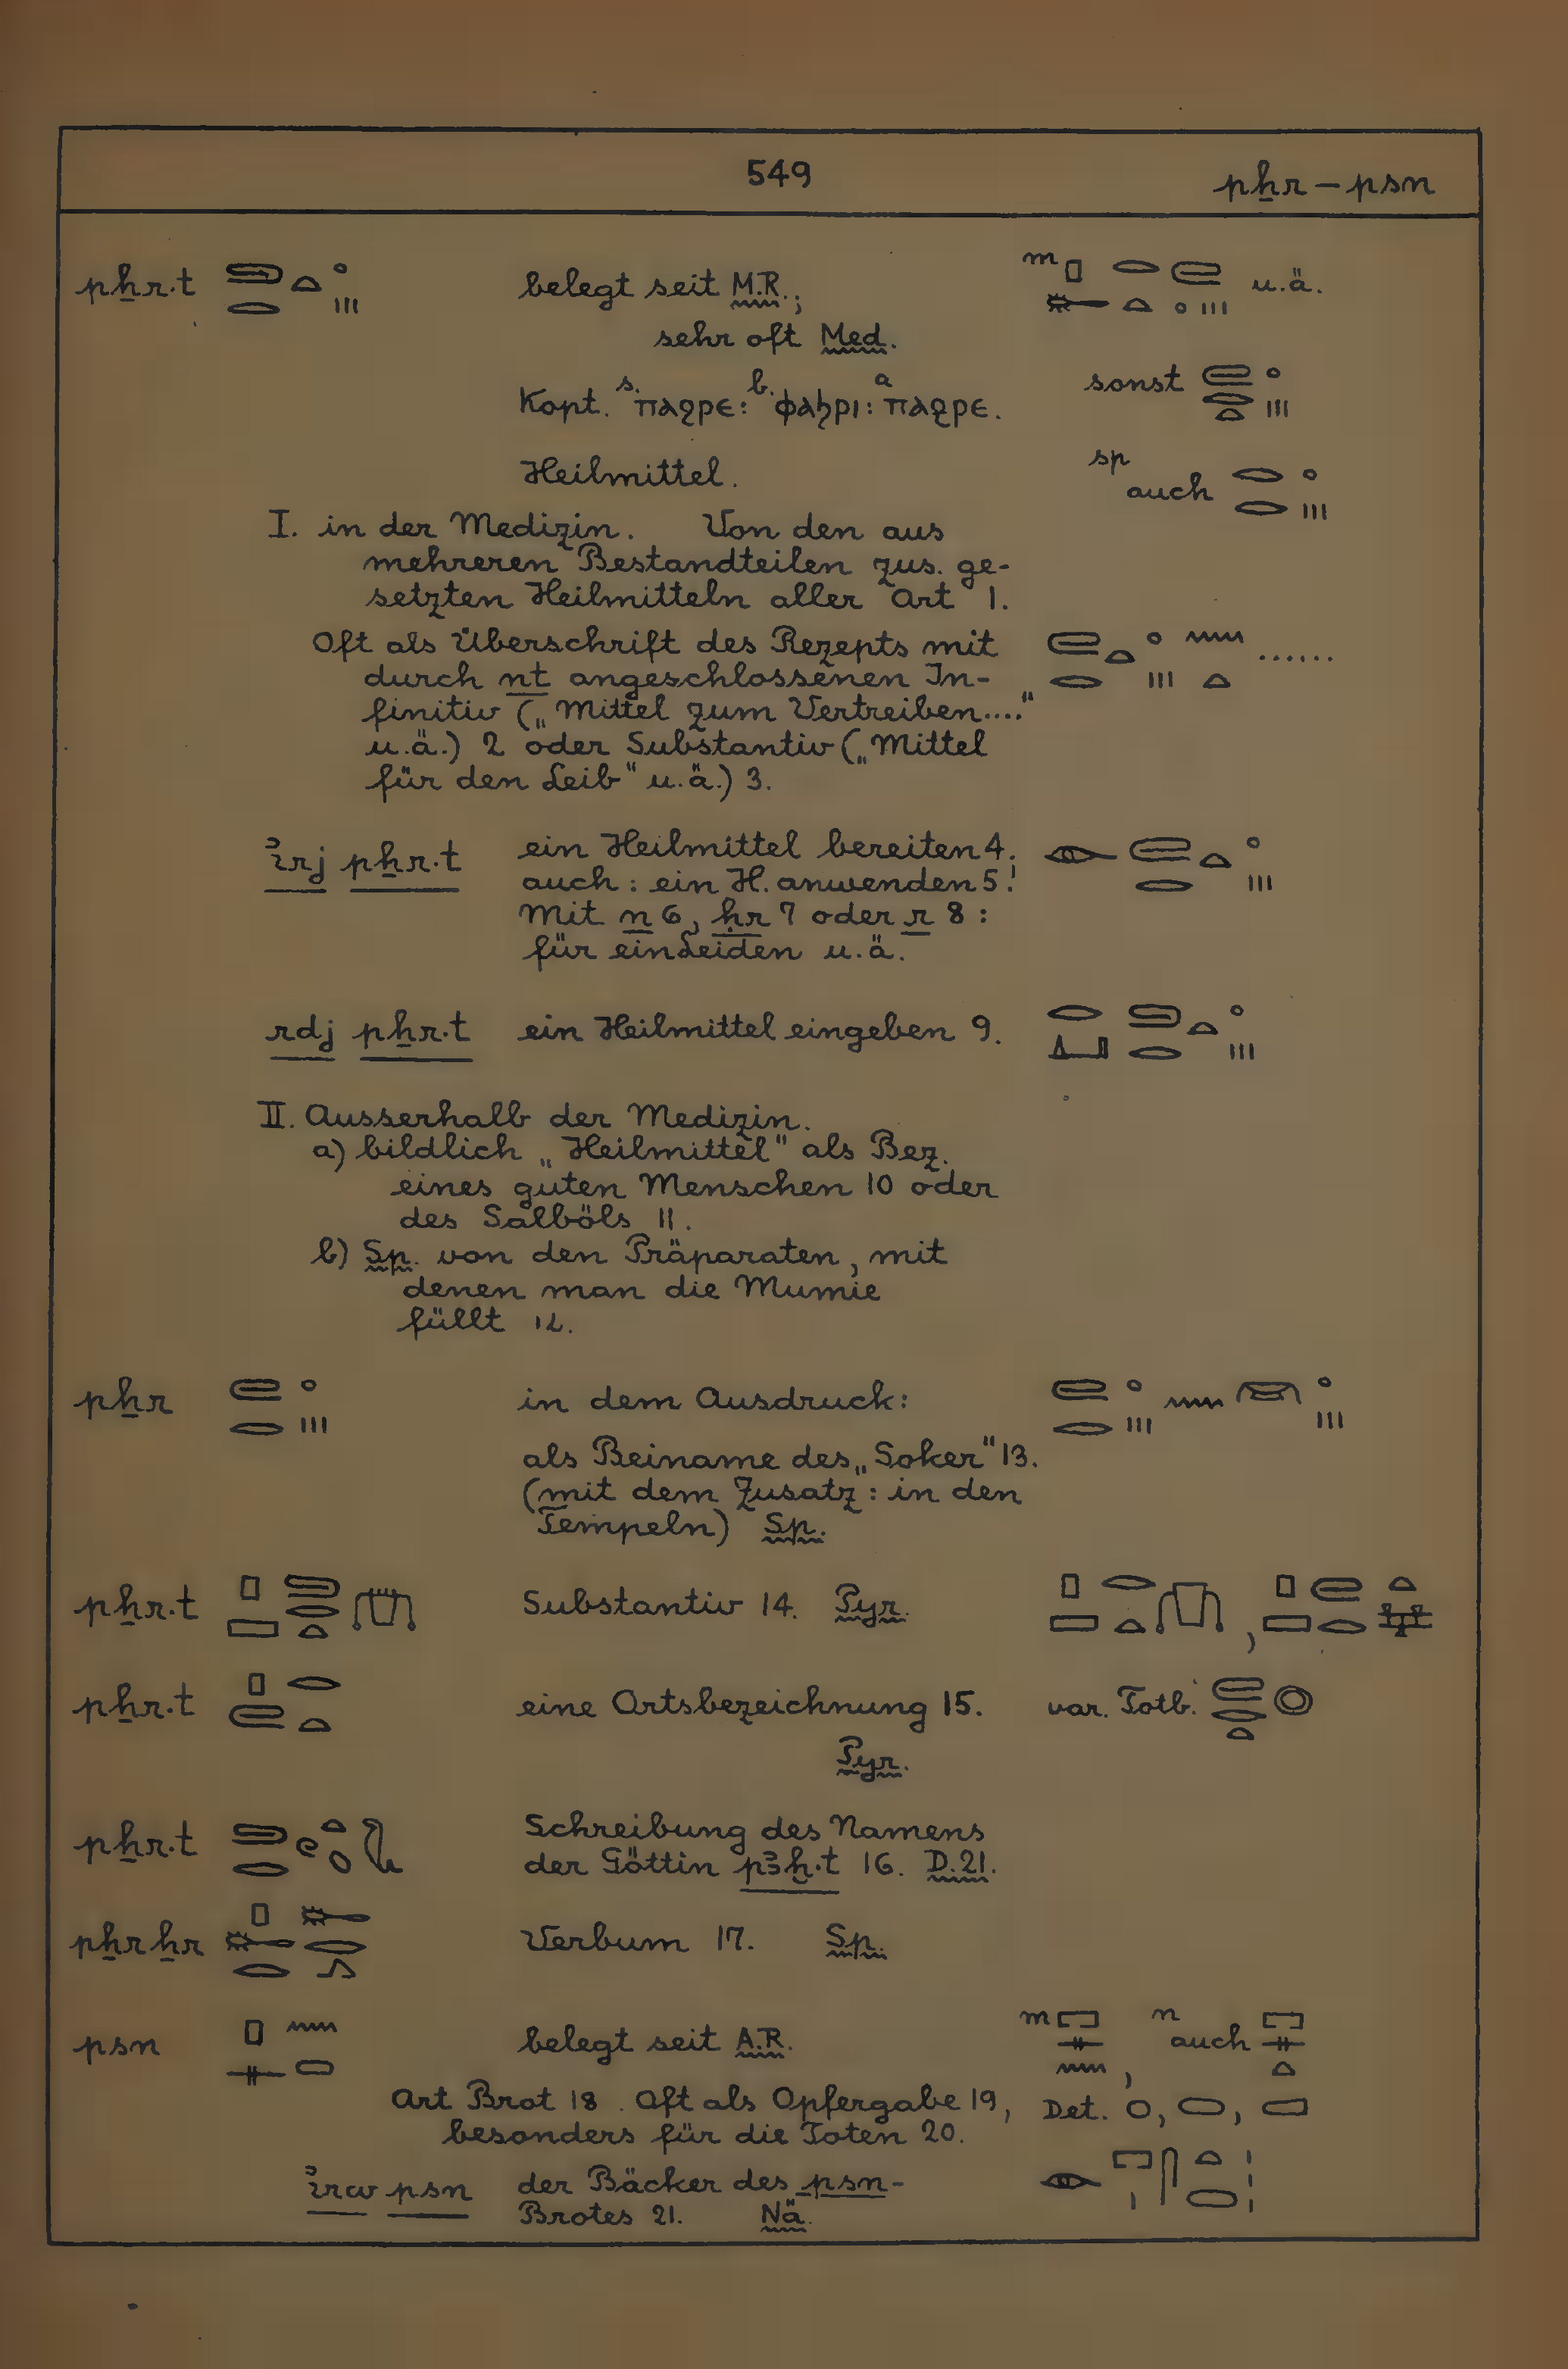 549
pẖr – psn
pẖr.t belegt seit M.R.; u.ä.
sehr oft Med.
Kopt. s. ⲡⲁϩⲣⲉ: b. ⲫⲁϧⲣⲓ: a ⲡⲁϩⲣⲉ. sonst
Heilmittel. sp auch
I. in der Medizin. Von den aus
mehreren Bestandteilen zus. ge-
setzten Heilmitteln aller Art 1.
Oft als Überschrift des Rezepts mit ......
durch nt angeschlossenen In-
finitiv („Mittel zum Vertreiben...."
u.ä.) 2 oder Substantiv („Mittel
für den Leib" u.ä.) 3.
ỉrj pẖr.t ein Heilmittel bereiten 4.
auch: ein H. anwenden 5!
Mit n 6, ḥr 7 oder r 8:
für ein Leiden u.ä.
rdj pẖr.t ein Heilmittel eingeben 9.
II. Ausserhalb der Medizin.
a) bildlich „Heilmittel" als Bez.
eines guten Menschen 10 oder
des Salböls 11.
b) Sp. von den Präparaten, mit
denen man die Mumie
füllt 12.
pẖr in dem Ausdruck:
als Beiname des „Soker" 13.
(mit dem Zusatz: in den
Tempeln) Sp.
pẖr.t Substantiv 14. Pyr. ,
pẖr.t eine Ortsbezeichnung 15. var. Totb.
Pyr.
pẖr.t Schreibung des Namens
der Göttin pꜣḫ.t 16. D.21.
pẖrẖr Verbum 17. Sp.
psn belegt seit A.R. m , n auch
Art Brot 18. Oft als Opfergabe 19, Det. , ,
besonders für die Toten 20.
ỉrw psn der Bäcker des psn-
Brotes 21. Nä.